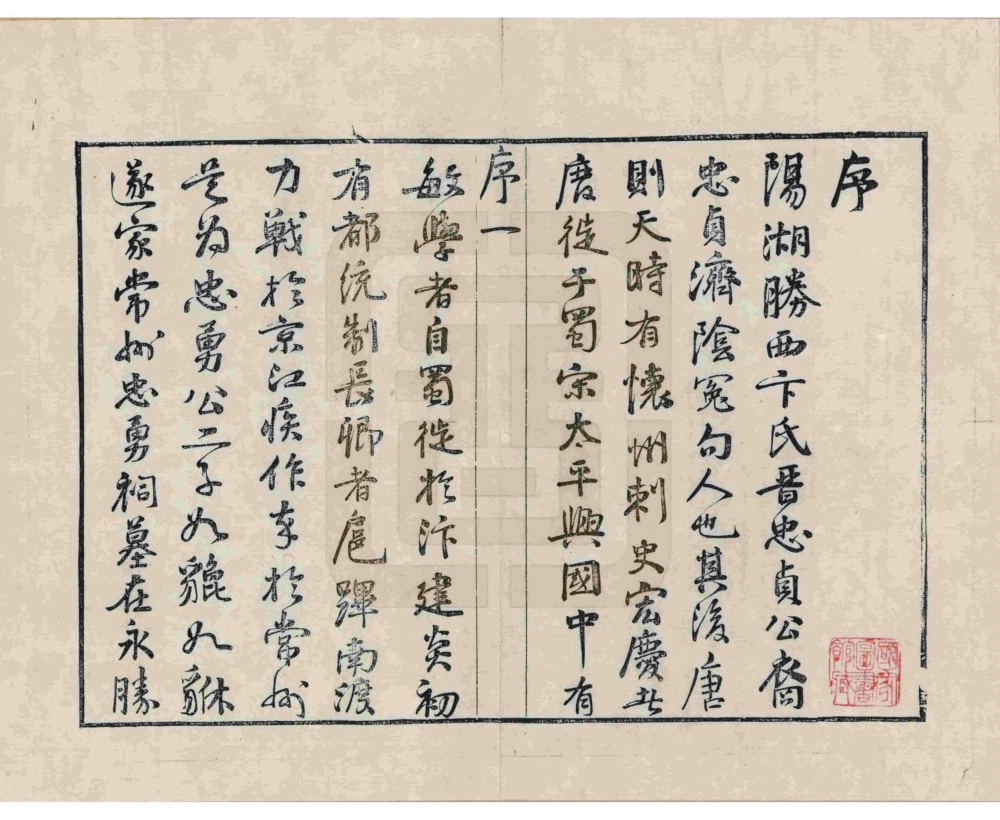 序
陽湖勝西卞氏晉忠貞公裔
忠貞濟陰冤句人也其後唐
則天時有懷州刺史宏慶者
唐徙于蜀宋太平興國中有
序一
敏學者自蜀徙於汴建炎初
有都統制長卿者扈蹕南渡
力戰於京江疾作卒於常州
是為忠勇公二子如貔如貅
遂家常州忠勇祠墓在永勝
國家圖書館藏